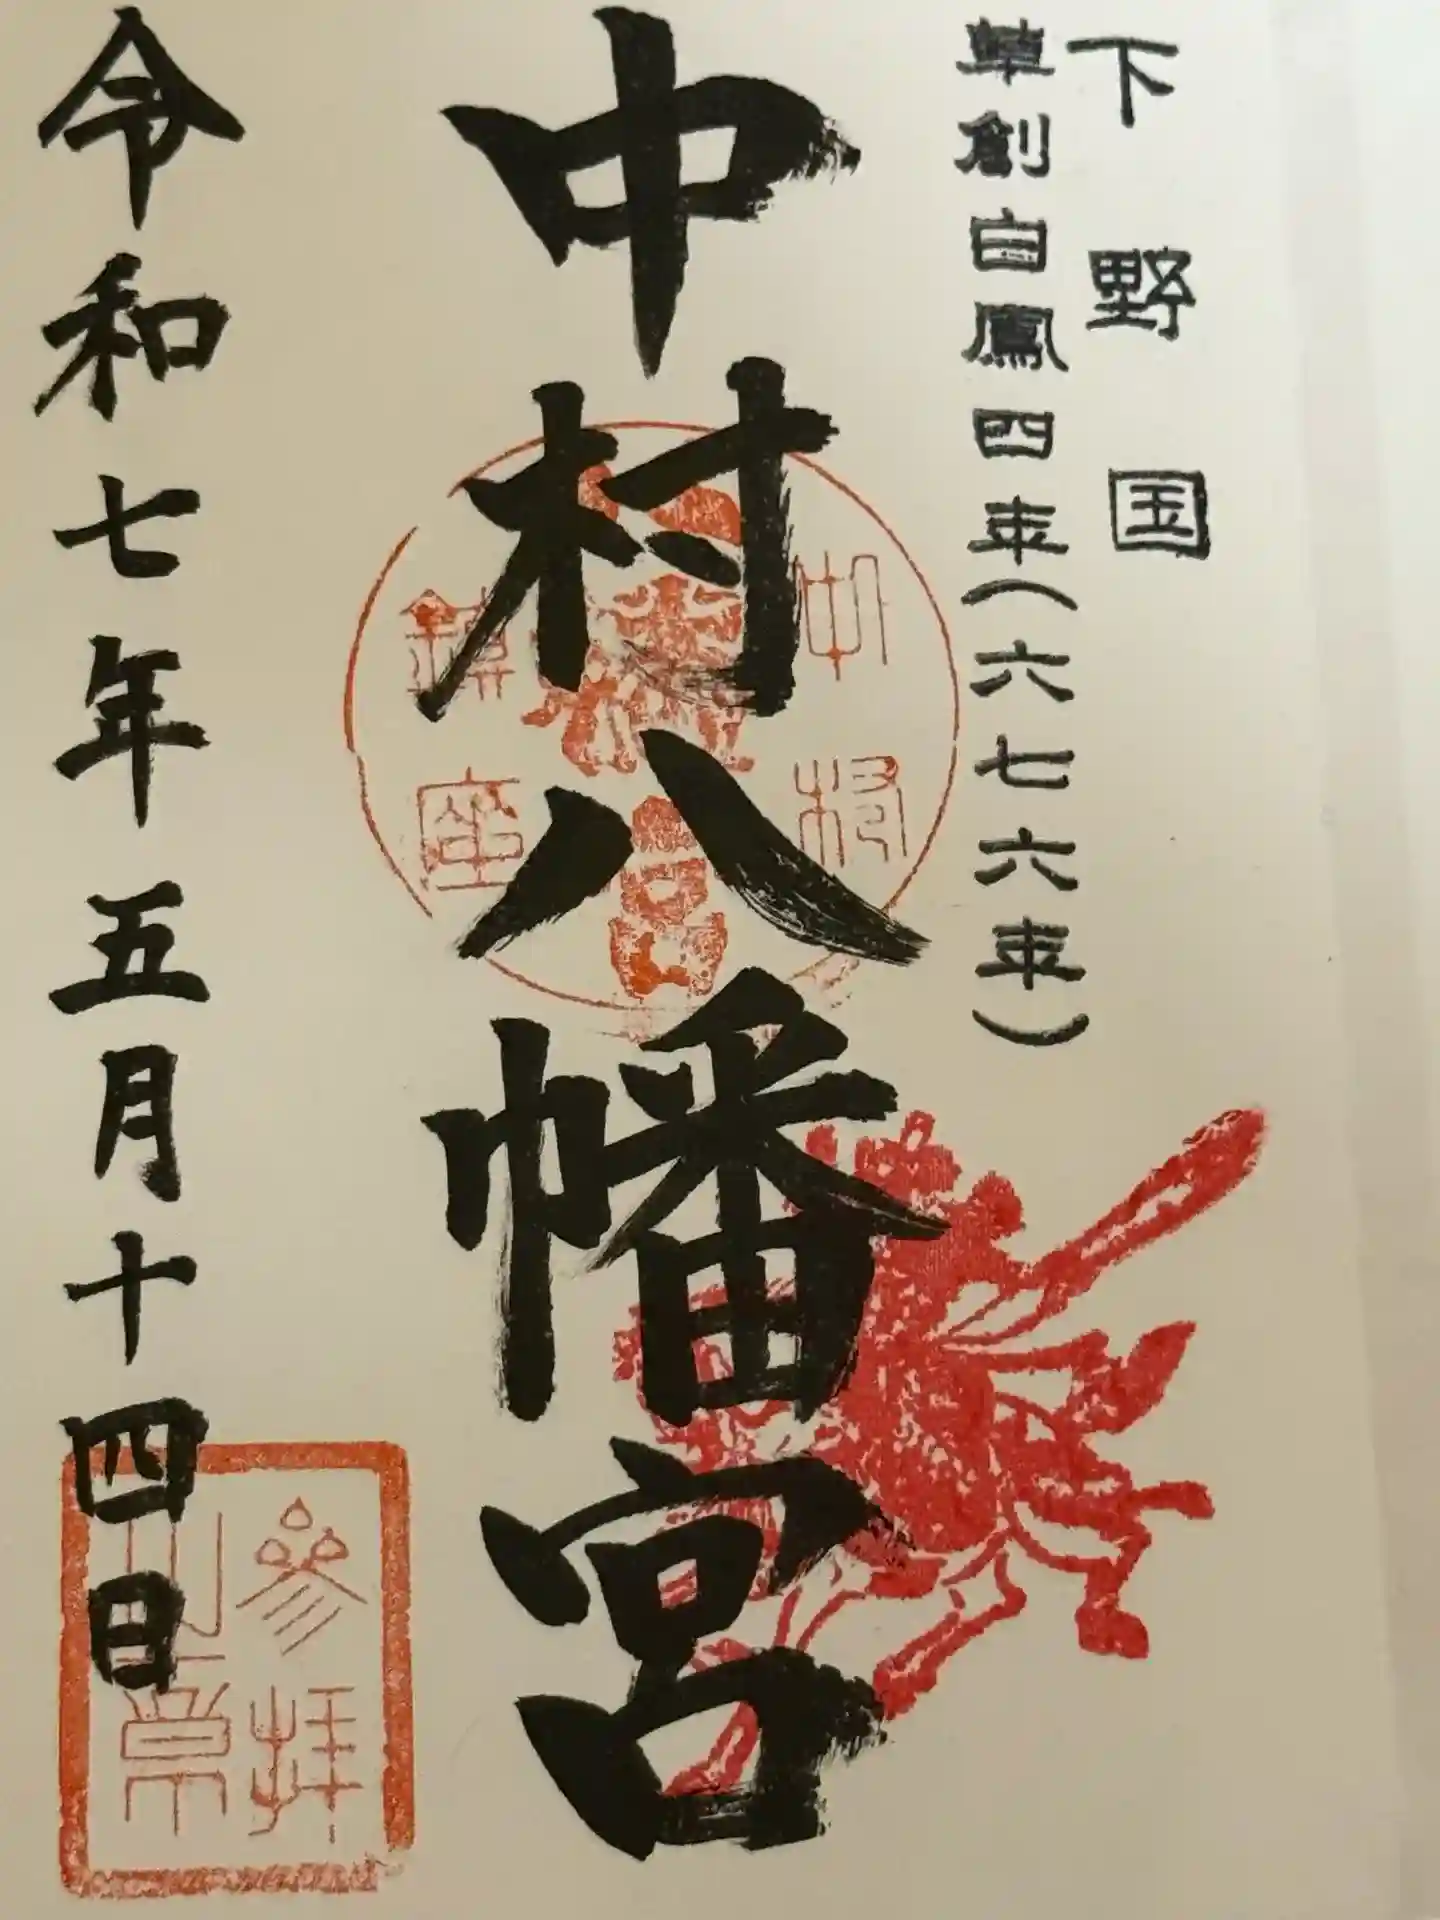 下野国
草創白鳳四年(六七六年)
中村八幡宮
中村
八幡宮
鎮座
令和七年五月十四日
参拝
之印